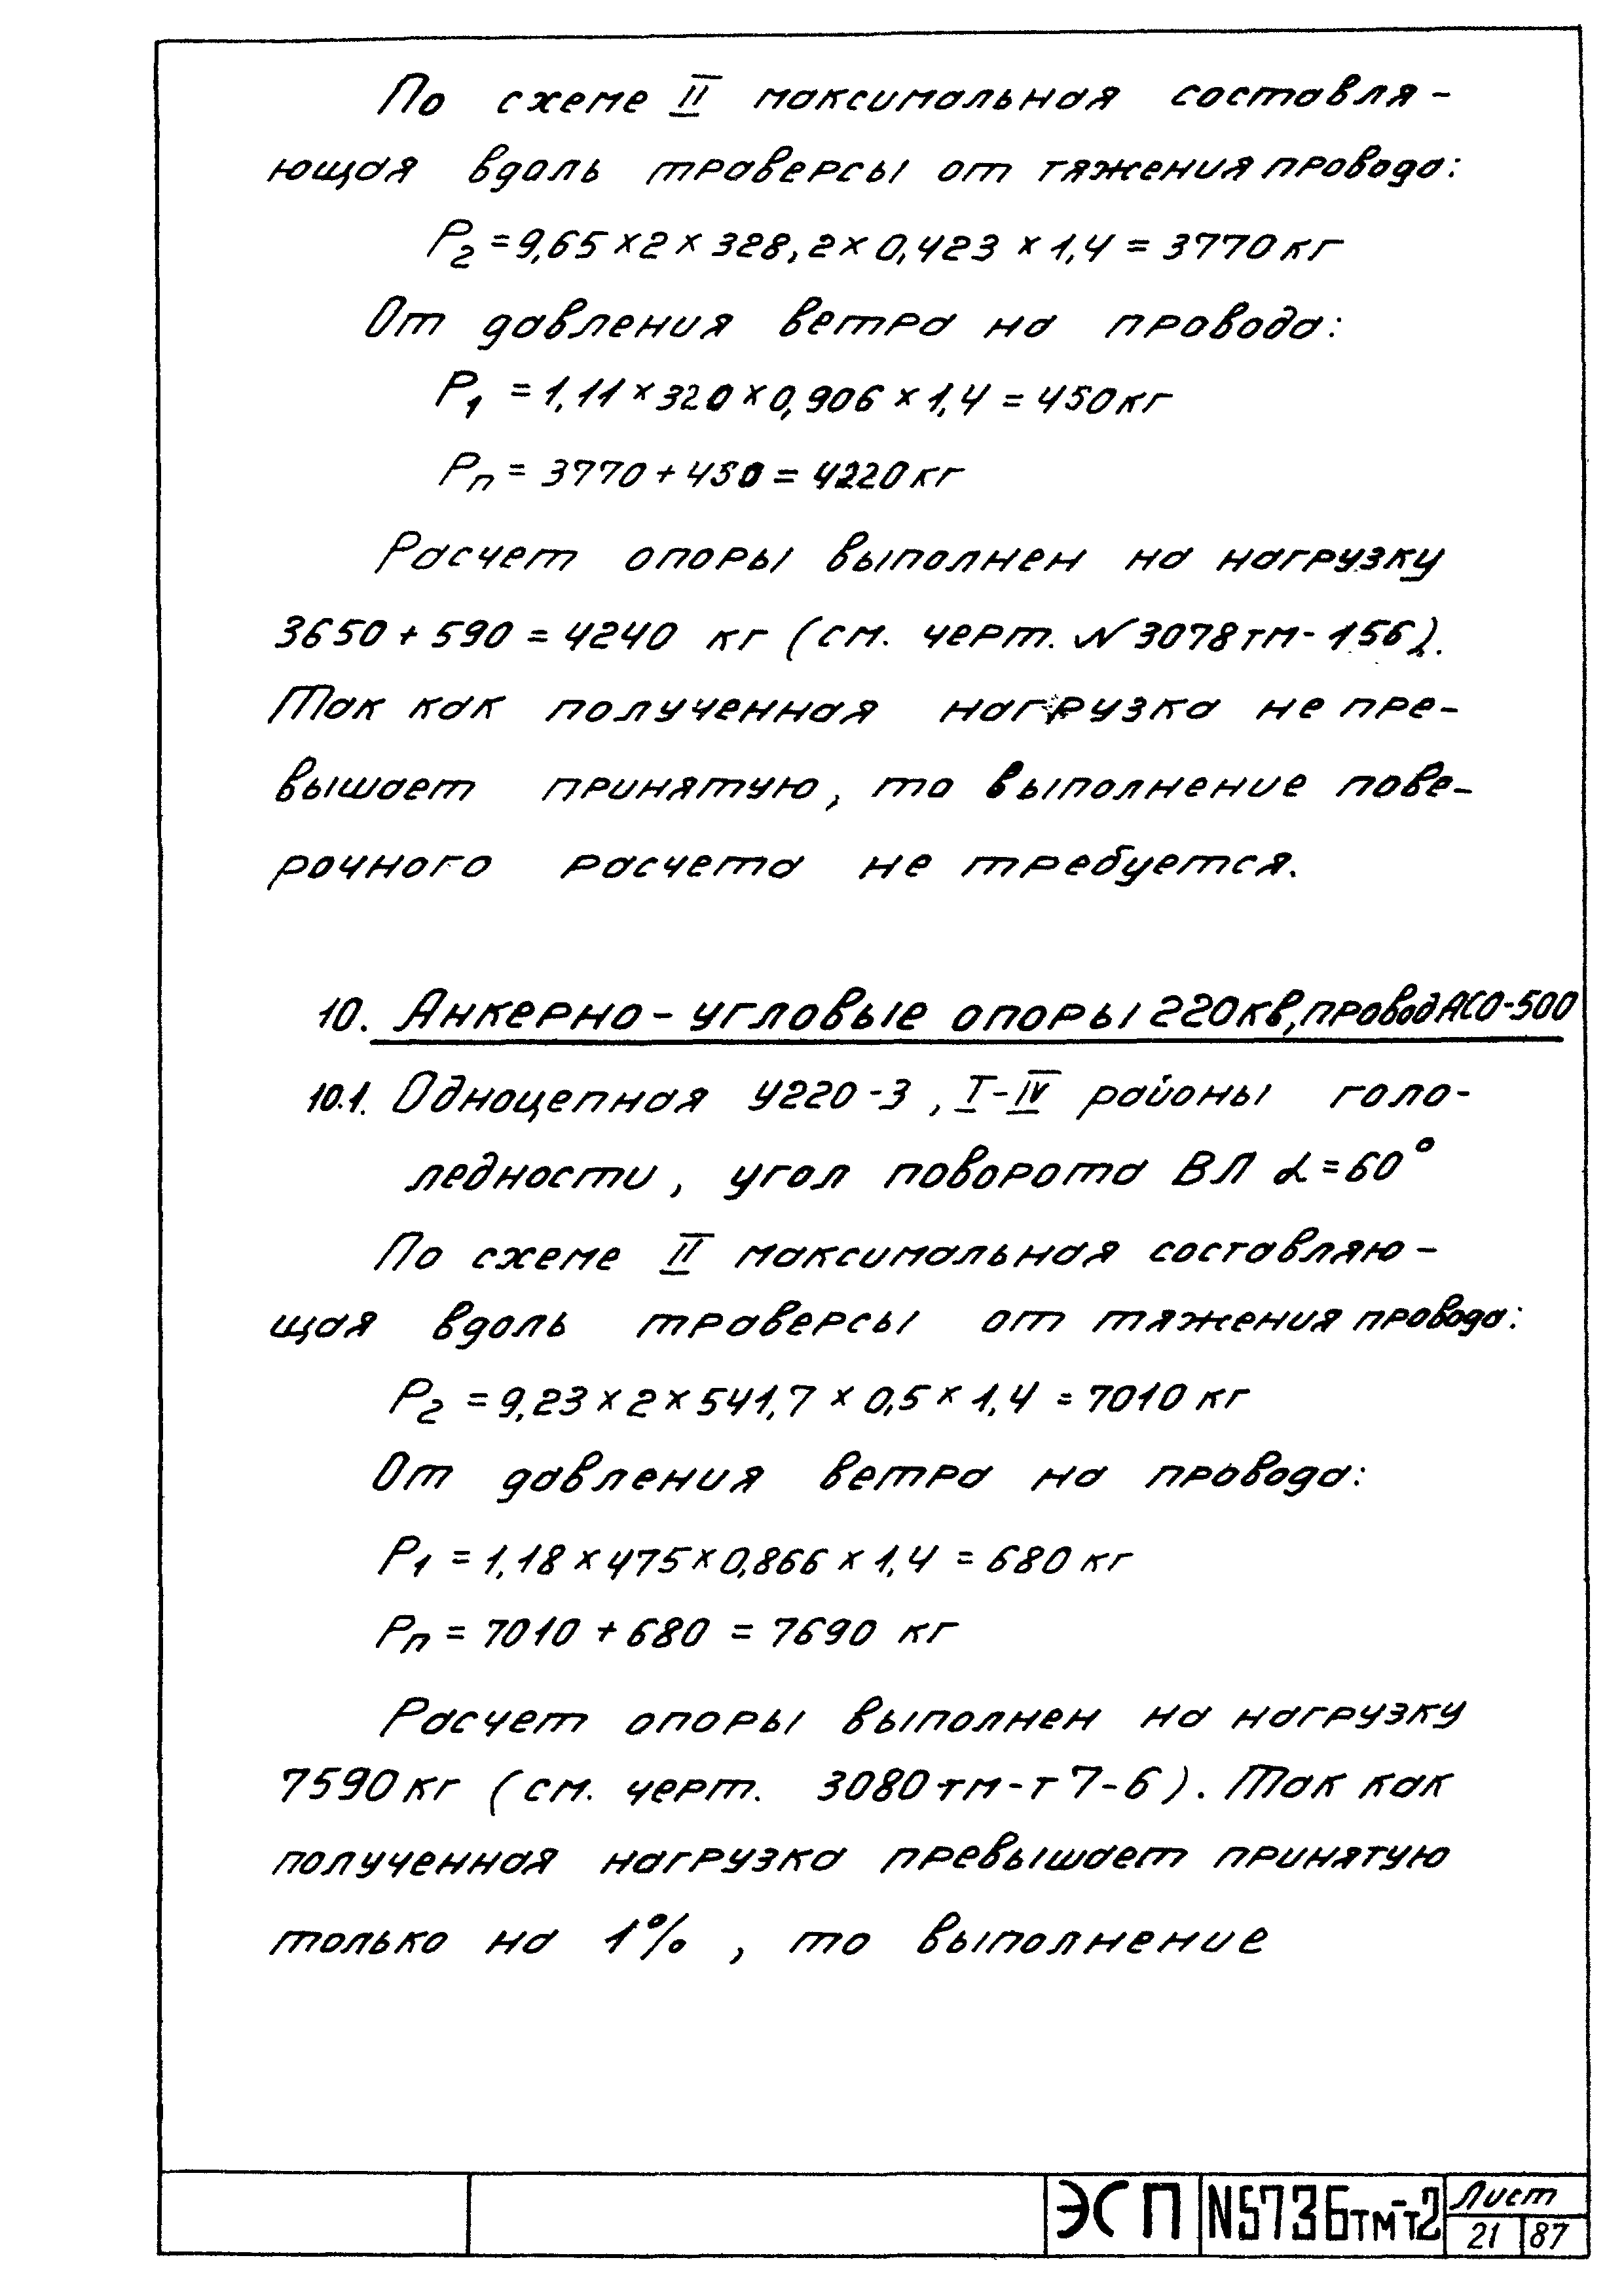 По схеме II максимальная составля-
ющая вдоль траверсы от тяжения провода:
P2 = 9,65 × 2 × 328,2 × 0,423 × 1,4 = 3770 кг
От давления ветра на провода:
P1 = 1,11 × 320 × 0,906 × 1,4 = 450 кг
Pп = 3770 + 450 = 4220 кг
Расчет опоры выполнен на нагрузку
3650 + 590 = 4240 кг (см. черт. N 3078тм-156).
Так как полученная нагрузка не пре-
вышает принятую, то выполнение пове-
рочного расчета не требуется.
10. Анкерно-угловые опоры 220кв, провод АСО-500
10.1. Одноцепная У220-3, I-IV районы голо-
ледности, угол поворота ВЛ α=60°
По схеме II максимальная составляю-
щая вдоль траверсы от тяжения провода:
P2 = 9,23 × 2 × 541,7 × 0,5 × 1,4 = 7010 кг
От давления ветра на провода:
P1 = 1,18 × 475 × 0,866 × 1,4 = 680 кг
Pп = 7010 + 680 = 7690 кг
Расчет опоры выполнен на нагрузку
7590 кг (см. черт. 3080тм-т7-6). Так как
полученная нагрузка превышает принятую
только на 1%, то выполнение
ЭСП N5736тм-т2 Лист
21 87